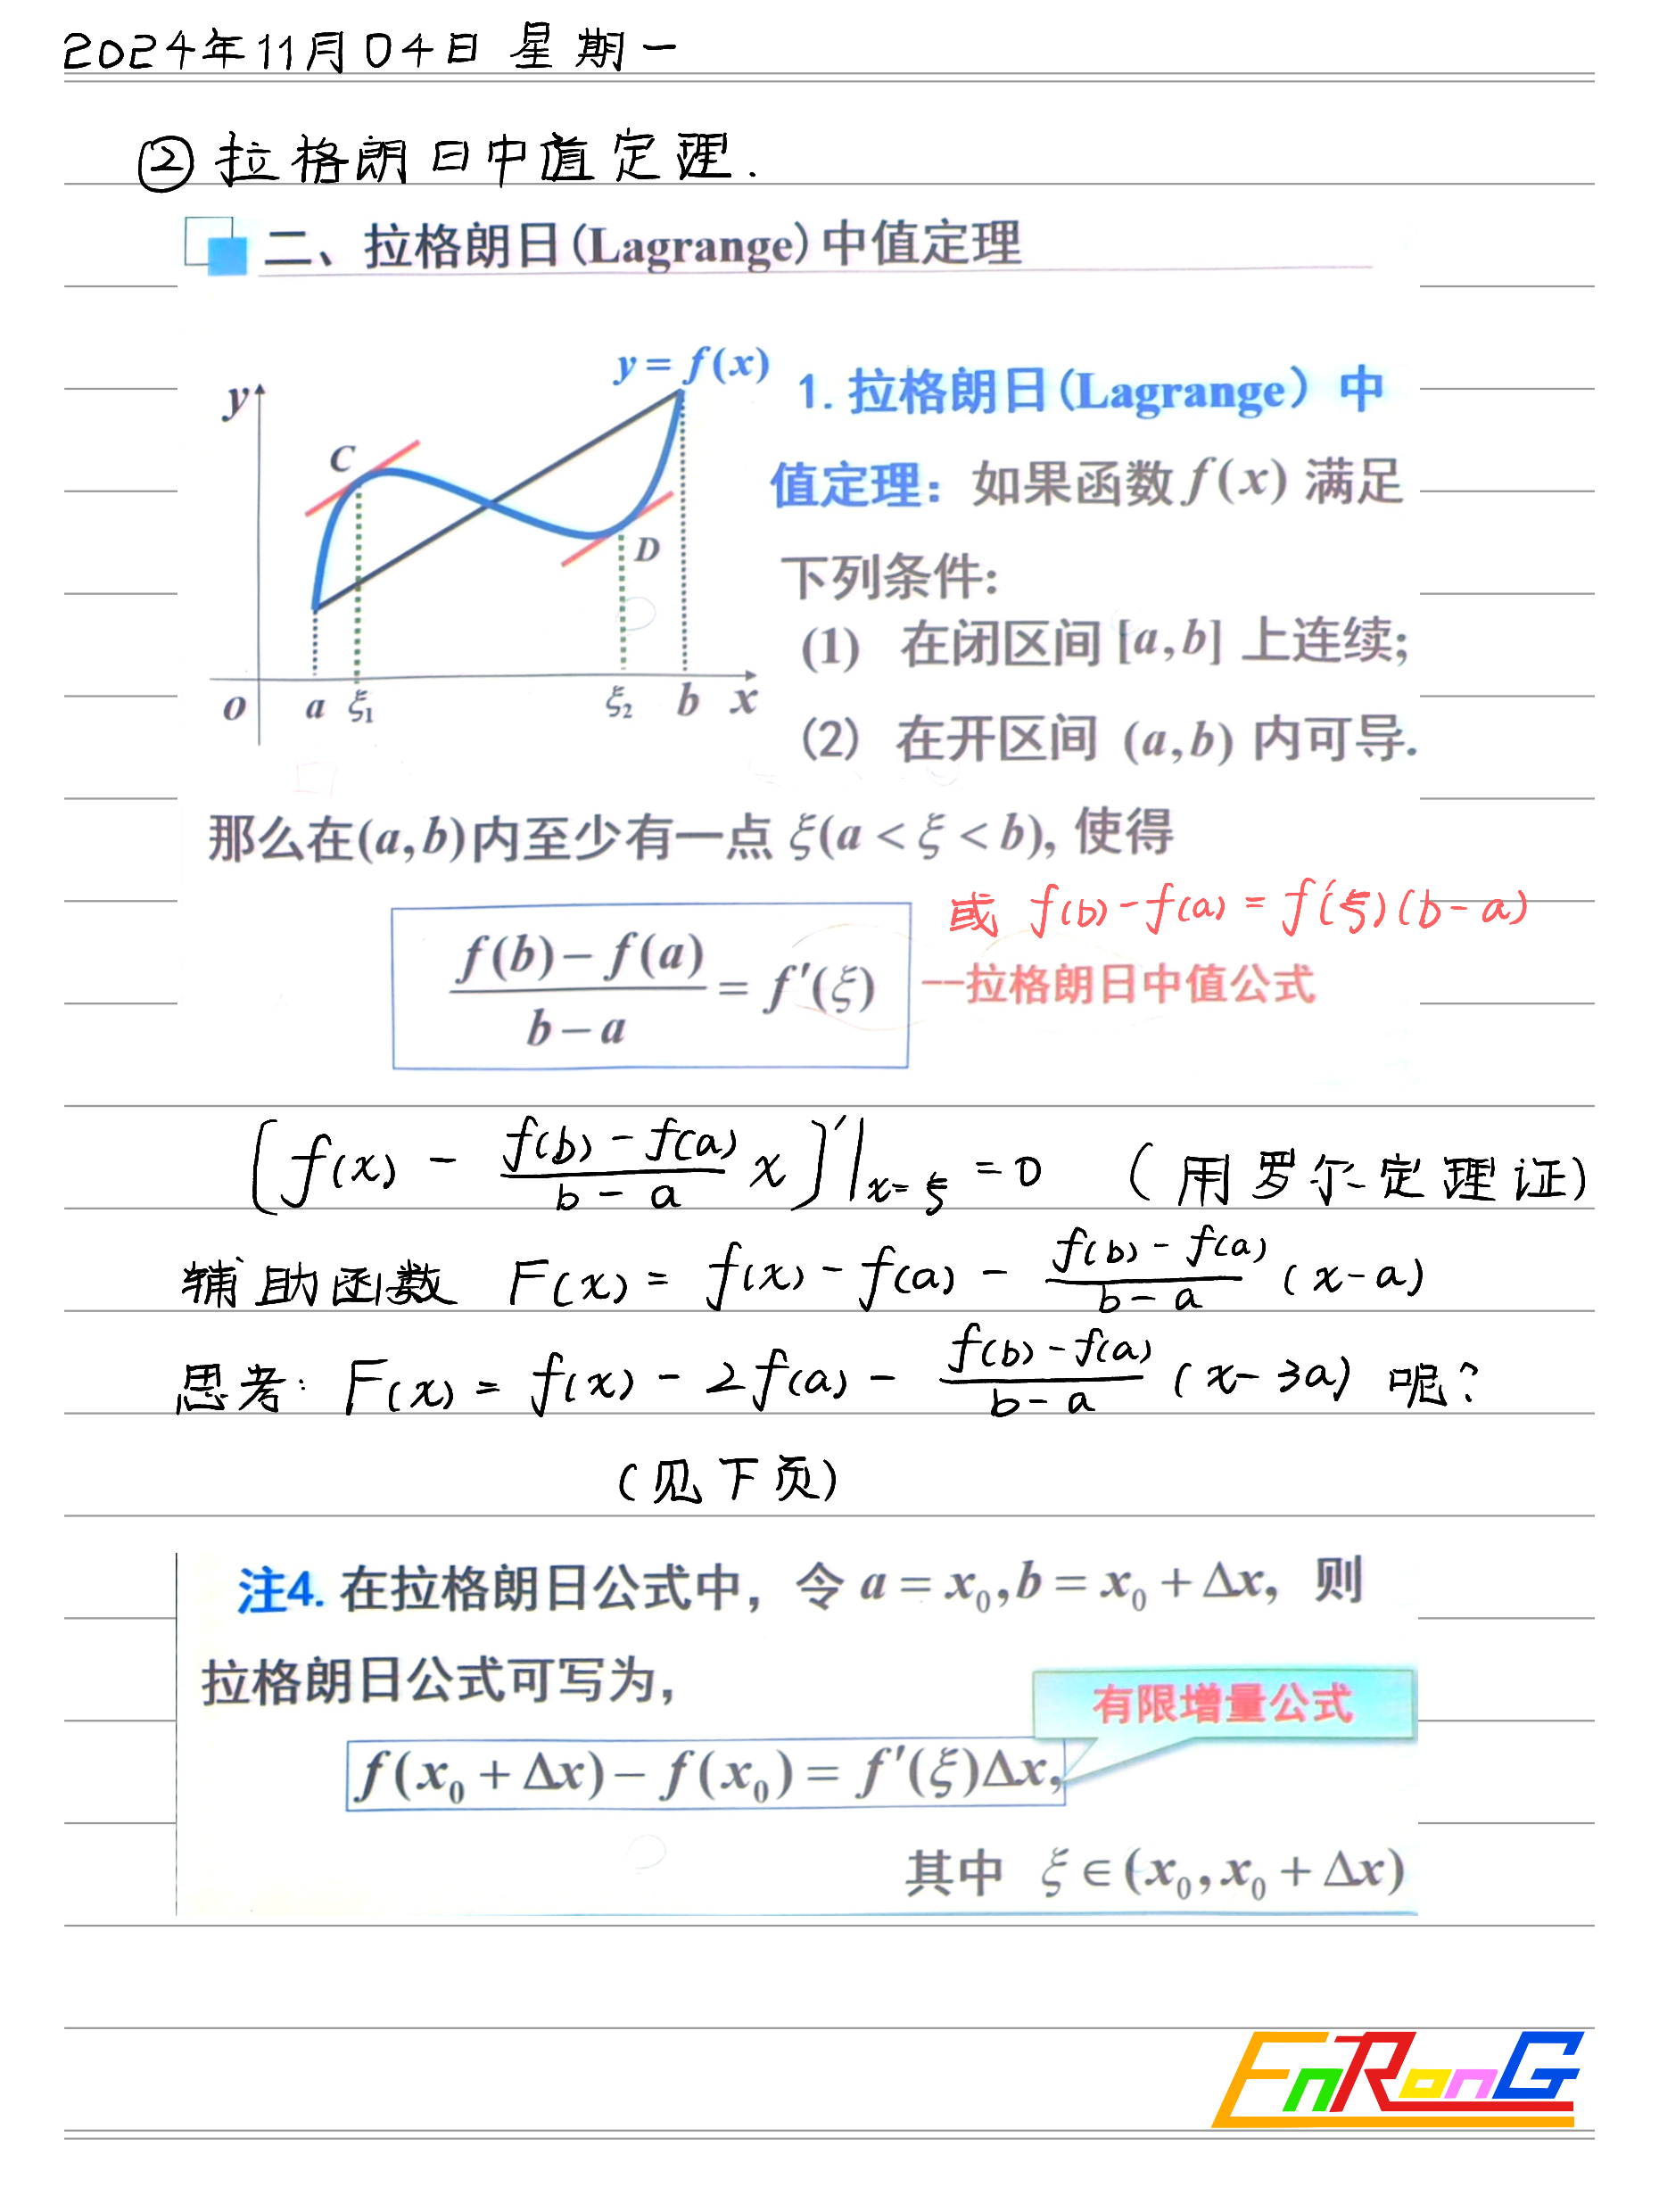 2024年11月04日 星期一
② 拉格朗日中值定理.
二、拉格朗日(Lagrange)中值定理
y
y = f(x)
C
D
o a ξ₁ ξ₂ b x
1. 拉格朗日(Lagrange）中
值定理：如果函数 f(x) 满足
下列条件:
(1) 在闭区间 [a,b] 上连续;
(2) 在开区间 (a,b) 内可导.
那么在(a,b)内至少有一点 ξ(a < ξ < b), 使得
或 f(b)-f(a) = f'(ξ)(b-a)
(f(b) − f(a))/(b − a) = f′(ξ) --拉格朗日中值公式
[f(x) - (f(b)-f(a))/(b-a) x]'|x=ξ = 0 (用罗尔定理证)
辅助函数 F(x) = f(x) - f(a) - (f(b)-f(a))/(b-a) (x-a)
思考: F(x) = f(x) - 2f(a) - (f(b)-f(a))/(b-a) (x-3a) 呢?
(见下页)
注4. 在拉格朗日公式中，令 a = x₀, b = x₀ + Δx, 则
拉格朗日公式可写为，
有限增量公式
f(x₀ + Δx) − f(x₀) = f′(ξ)Δx,
其中 ξ ∈ (x₀, x₀ + Δx)
EnRonG